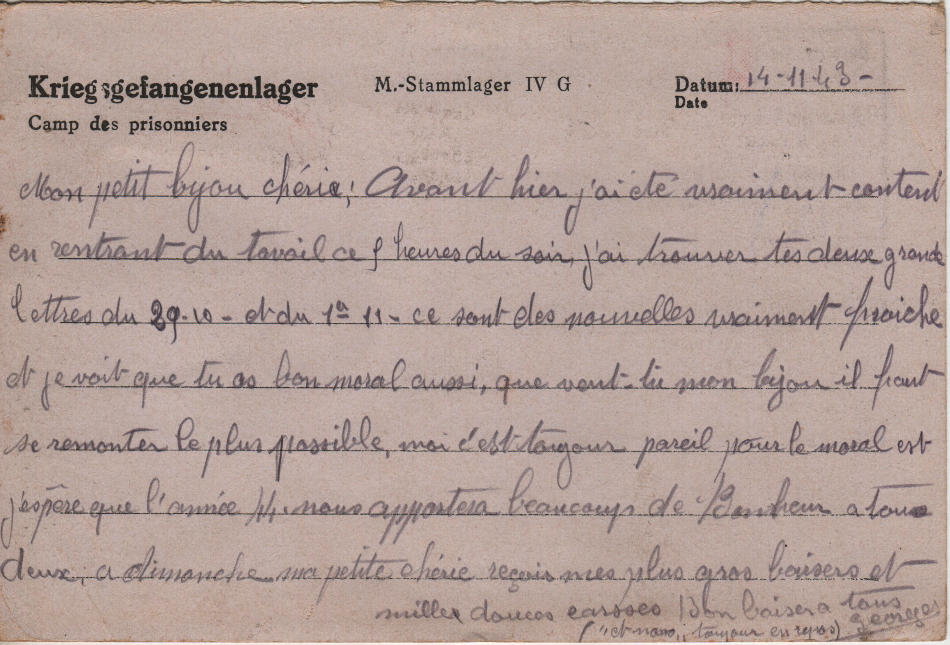 Kriegsgefangenenlager M.-Stammlager IV G Datum: 14-11-43-
Camp des prisonniers Date
Mon petit bijou chérie! Avant hier j'ai été vraiment contend
en rentrant du tavail ce 5 heures du soir, j'ai trouver tes deux grande
lettres du 29-10- et du 1er 11- ce sont des nouvelles vraiment fraiche
et je voit que tu as bon moral aussi, que veut-tu mon bijou il faut
se remonter le plus possible, moi c'est toujour pareil pour le moral est
j'espère que l'année 44. nous apportera beaucoup de Bonheur a tous
deux, a dimanche ma petite chérie reçois mes plus gros baisers et
milles douces caresses Bon baiser a tous
("et nano,, toujour en repos) georges